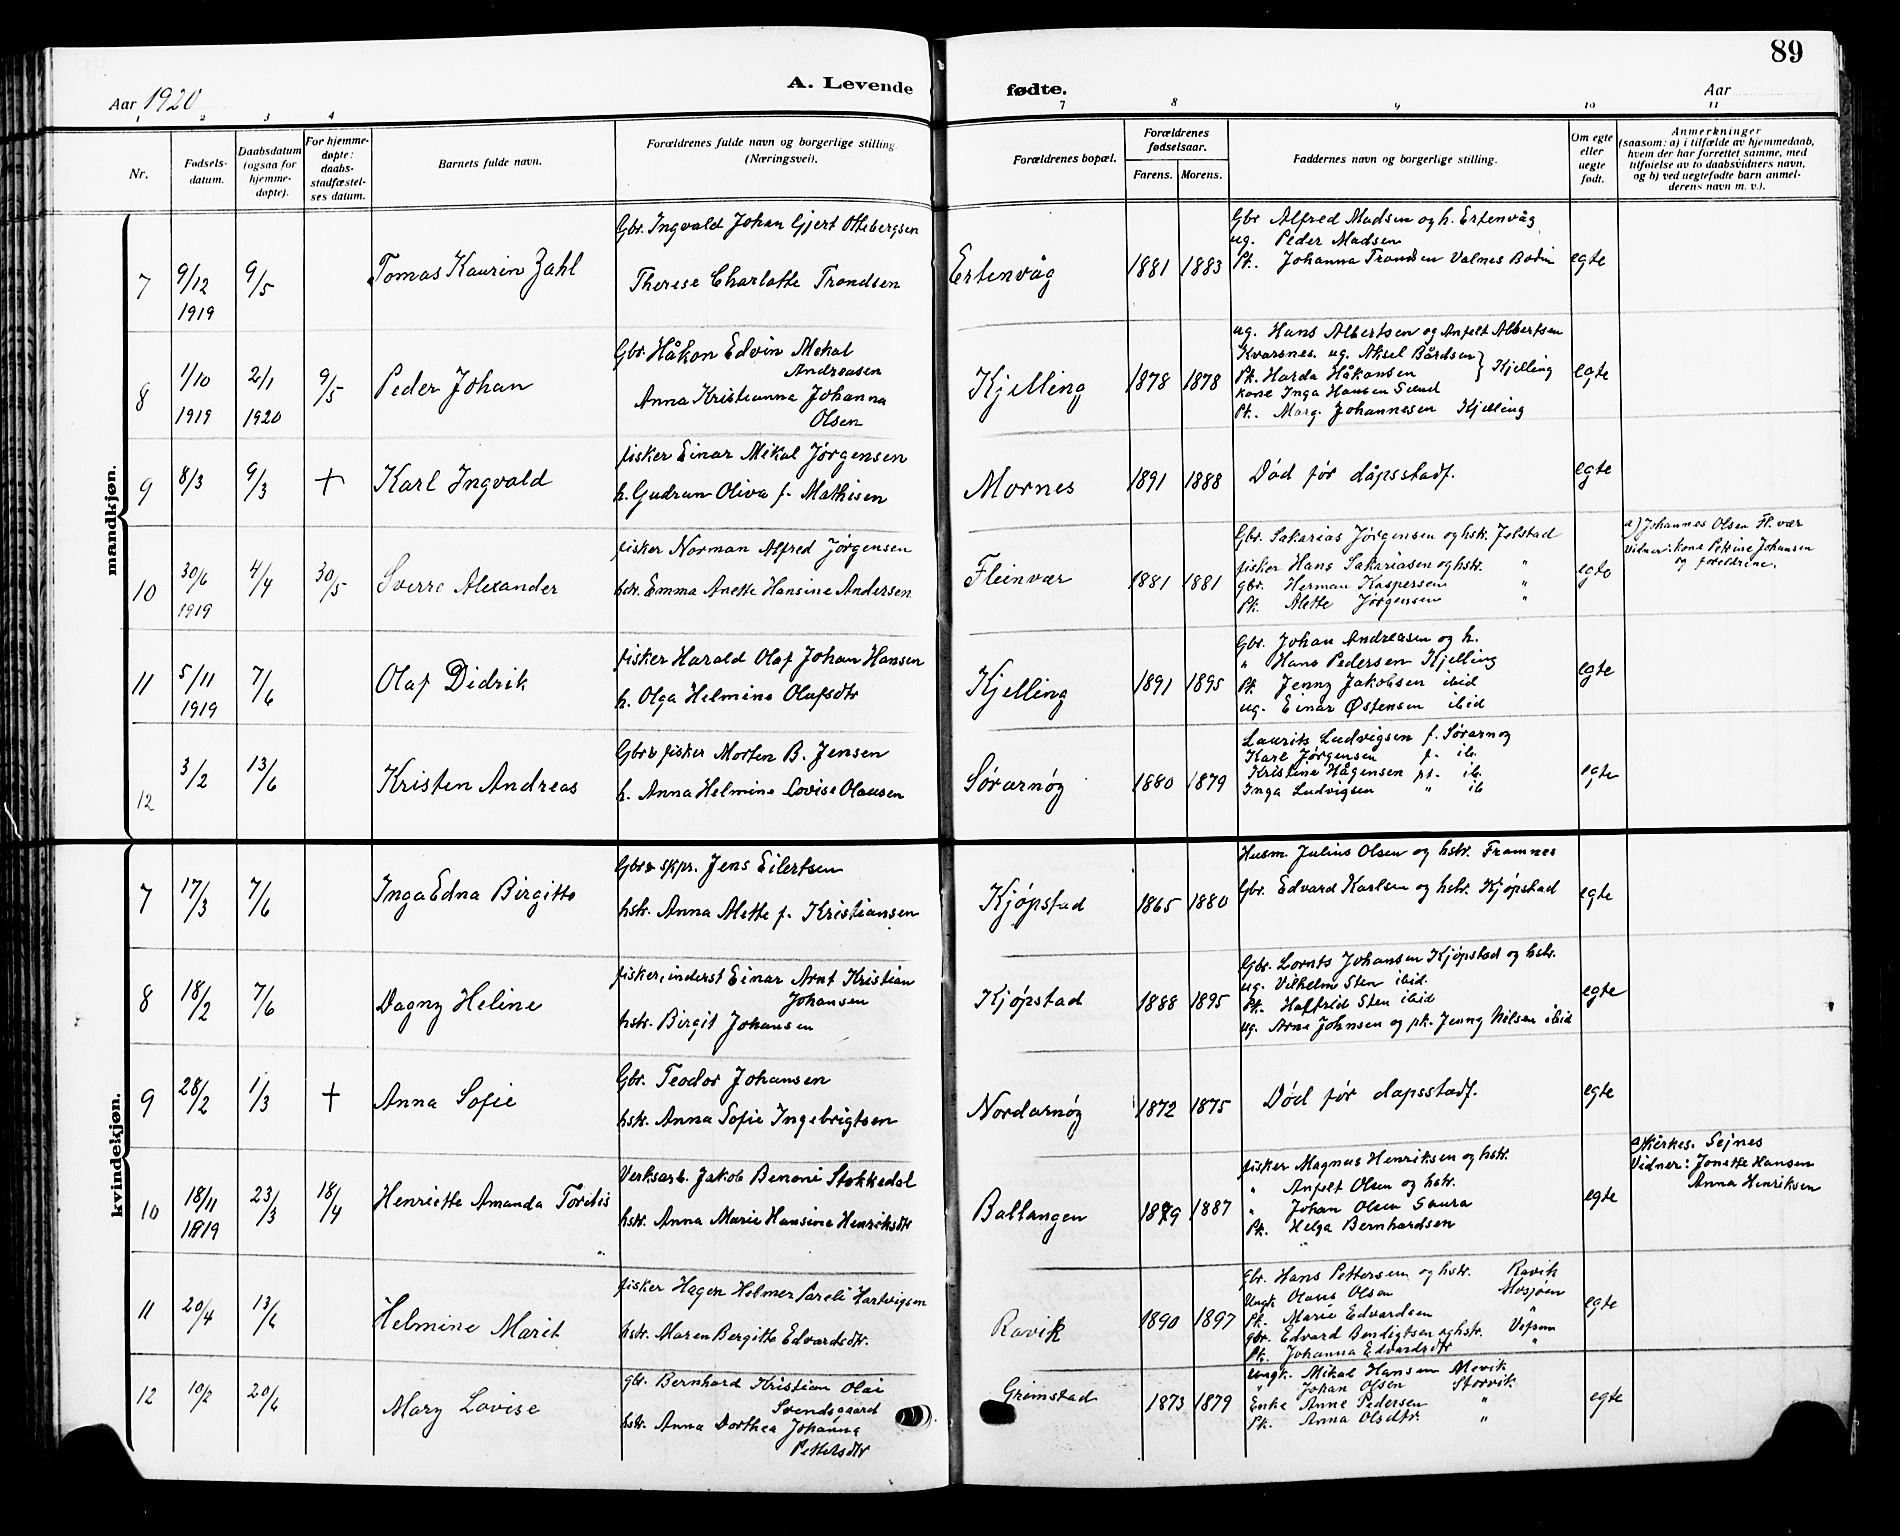 89
Aar 1920
A. Levende fødte.
Aar
1 2 3 4 7 8 9 10 11
Nr.
Fødsels-
datum.
Daabsdatum
(ogsaa for
hjemme-
døpte).
For hjemme-
døpte:
daabs-
stadfæstel-
ses datum.
Barnets fulde navn.
Forældrenes fulde navn og borgerlige stilling.
(Næringsvei).
Forældrenes bopæl.
Forældrenes
fødselsaar.
Farens. Morens.
Faddernes navn og borgerlige stilling.
Om egte
eller
uegte
født.
Anmerkninger
(saasom: a) i tilfælde av hjemmedaab,
hvem der har forrettet samme, med
tilføielse av to daabsvidners navn,
og b) ved uegtefødte barn anmel-
derens navn m. v.).
mandkjøn.
7
9/12
1919
9/5
Tomas Kaurin Zahl
Gbr. Ingvald Johan Gjert Ottebergsen
Therese Charlotte Trondsen
Ertenvåg
1881 1883
Gbr Alfred Madsen og h. Ertenvåg
ug. Peder Madsen
Pk. Johanna Trondsen Valnes Bodin
egte
8
1/10
1919
2/1
1920
9/5
Peder Johan
Gbr Håkon Edvin Mekal
Andreasen
Anna Kristianna Johanna
Olsen
Kjelling
1878 1878
ug. Hans Albertsen og Anfelt Albertsen
Kvarsnes. ug. Aksel Bårdsen
Pk. Harda Håkonsen } Kjelling
kone Inga Hansen Sund
Pk. Marg. Johannesen Kjelling
egte
9
8/3
9/3
+
Karl Ingvald
fisker Einar Mikal Jørgensen
h. Gudrun Oliva f. Mathisen
Mornes
1891 1888
Død før dåpsstadf.
egte
10
30/6
1919
4/4
30/5
Sverre Alexander
fisker Norman Alfred Jørgensen
hstr. Emma Anette Hansine Andersen
Fleinvær
1881 1881
Gbr. Sakarias Jørgensen og hstr. Jelstad
fisker Hans Sakariasen og hstr. "
gbr. Herman Kaspersen "
Pk. Alette Jørgensen "
egte
a) Johannes Olsen Fl. vær
vidner: kone Petrine Johansen
og foreldrene.
11
5/11
1919
7/6
Olaf Didrik
fisker Harald Olaf Johan Hansen
h. Olga Helmine Olafsdtr
Kjelling
1891 1895
Gbr. Johan Andreasen og h.
" Hans Pedersen Kjelling
Pk Jenny Jakobsen ibid
ug. Einar Østensen ibid
egte
12
3/2
13/6
Kristen Andreas
Gbr & fisker Morten B. Jensen
h. Anna Helmine Lovise Olausen
Sørarnøy
1880 1879
Laurits Ludvigsen f. Sørarnøy
Karl Jørgensen f. ib.
Kristine Hågensen pk. ib.
Inga Ludvigsen " ib
egte
kvindekjøn.
7
17/3
7/6
Inga Edna Birgitte
Gbr & skpr. Jens Eilertsen
hstr. Anna Alette f. Kristiansen
Kjøpstad
1865 1880
Husm. Julius Olsen og hstr. Framnes
Gbr. Edvard Karlsen og hstr. Kjøpstad
egte
8
18/2
7/6
Dagny Heline
fisker, inderst Einar Arnt Kristian
Johansen
hstr. Birgit Johansen
Kjøpstad
1888 1895
Gbr. Lornts Johansen Kjøpstad og hstr.
ug. Vilhelm Sten ibid.
Pk. Haftrid Sten ibid
ug. Arne Johnsen og pk. Jenny Nilsen ibid
egte
9
28/2
1/3
+
Anna Sofie
Gbr. Teodor Johansen
hstr. Anna Sofie Ingebrigtsen
Nordarnøy
1872 1875
Død før dåpsstadf.
egte
10
18/11
1919
23/3
18/4
Henriette Amanda Toralis
Verksarb. Jakob Benoni Stokkedal
hstr. Anna Marie Hansine Henriksdtr
Ballangen
1879 1887
fisker Magnus Henriksen og hstr.
" Anfelt Olsen og hstr.
" Johan Olsen Saura
Pk. Helga Bernhardsen
egte
Sejnes
Vidner: Jonette Hansen
Anna Henriksen
11
20/4
13/6
Helmine Marit
fisker Hagen Holmer Pareli Hartvigsen
hstr. Maren Bergitte Edvardsdtr.
Ravik
1890 1897
gbr. Hans Pettersen og hstr. Ravik
Ungk Olaus Olsen Mosjøen
Pk. Marie Edvardsen "
gbr. Edvard Bendigtsen og hstr. Vefsen
Pk. Johanna Edvardsdtr "
egte
12
10/2
20/6
Mary Lovise
gbr. Bernhard Kristian Olai
Svendsgaard
hstr. Anna Dorthea Johanna
Pettersdtr
Grimstad
1873 1879
ungk. Mikal Hansen Mevik
" Johan Olsen Storvik
Enke Anne Pedersen "
Pk. Anna Olsdtr. "
egte